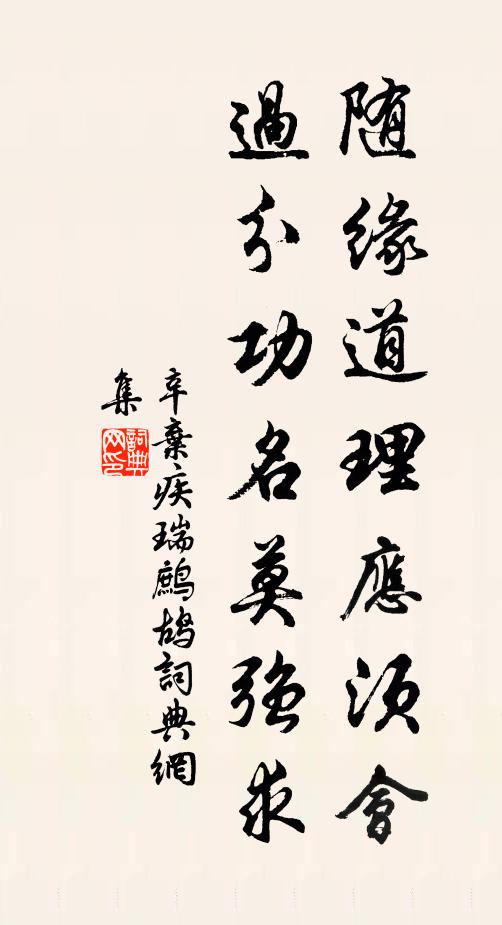 随缘道理應須會
過分功名莫強求
辛棄疾瑞鷓鴣詞典網
集
詞典
网印